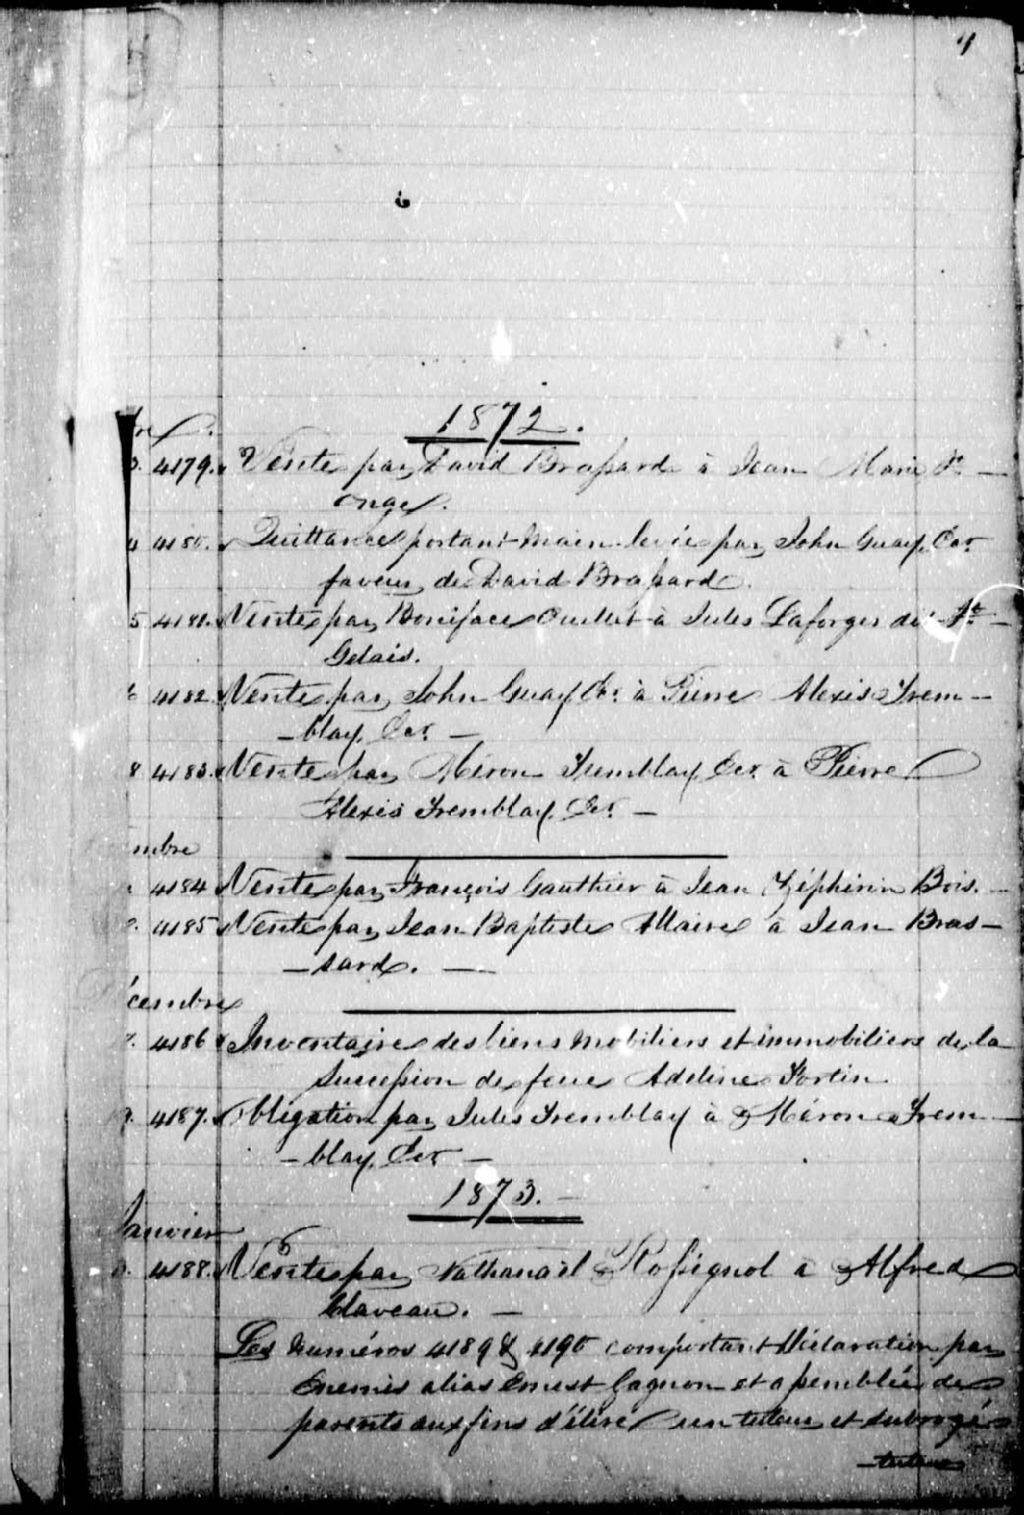 1872.
4179. Vente par David Brassard à Jean Marie St-
onge.
4 4180. Quittance portant main-levée par John Guay, Ecr
faveur de David Brassard.
5 4181. Vente par Boniface Ouellet à Jules Laforge dit St-
Gelais.
6 4182. Vente par John Guay Ecr à Pierre Alexis Trem-
-blay, Ecr. -
8 4183. Vente par Méron Tremblay Ecr. à Pierre
Alexis Tremblay, Ecr. -
mbre
4184 Vente par François Gauthier à Jean Zéphirin Bois. -
4185 Vente par Jean Baptiste Allaire à Jean Bras-
-sard. -
écembre
4186 Inventaire des biens mobiliers et immobiliers de la
Succession de feue Adeline Fortin
4187. Obligation par Jules Tremblay à Méron Trem-
-blay, Ecr -
1873. -
Janvier
4188. Vente par Nathanaël Rossignol à Alfred
Claveau. -
Les numéros 4189 & 4190 comportant Déclaration par
alias Ernest Gagnon et assemblée de
parents aux fins d'élire un tuteur et subrogé
-tuteur